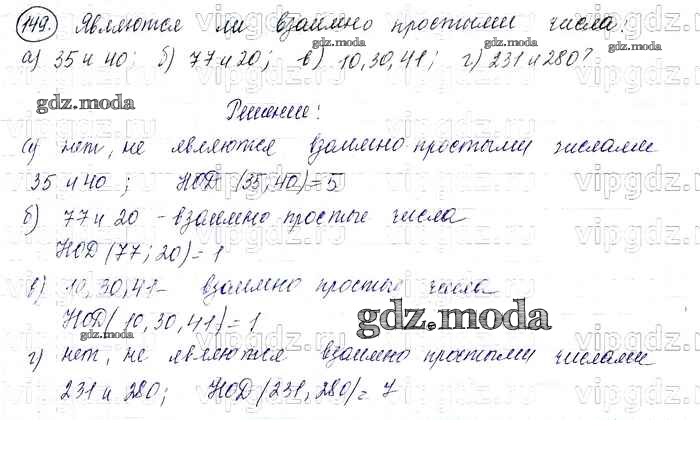 149. Являются ли взаимно простыми числа:
а) 35 и 40; б) 77 и 20; в) 10, 30, 41; г) 231 и 280?
gdz.moda
gdz.moda
gdz.moda
gdz.moda
Решение:
а) нет, не являются взаимно простыми числами
35 и 40; НОД (35, 40) = 5
б) 77 и 20 - взаимно простые числа
НОД (77; 20) = 1
в) 10, 30, 41 - взаимно простые числа
НОД (10, 30, 41) = 1
gdz.moda
г) нет, не являются взаимно простыми числами
231 и 280; НОД (231, 280) = 7
vipgdz.ru